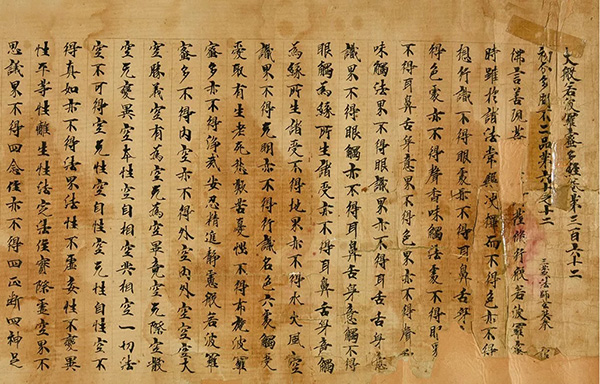 大般若波羅蜜多經卷第三百六十二
初分多問不二品第六十一之十二
三藏法師玄奘
佛言善現 薩修行般若波羅蜜
時雖於諸法常樂決擇而不得色亦不得
想行識不得眼處亦不得耳鼻舌身
得色處亦不得聲香味觸法處不得眼界
不得耳鼻舌身意界不得色界亦不得聲香
味觸法界不得眼識界亦不得耳鼻舌身意
識界不得眼觸亦不得耳鼻舌身意觸不得
眼觸為緣所生諸受亦不得耳鼻舌身意觸
為緣所生諸受不得地界亦不得水火風空
識界不得无明亦不得行識名色六處觸受
愛取有生老死愁歎苦憂惱不得布施波羅
蜜多亦不得淨戒安忍精進靜慮般若波羅
蜜多不得內空亦不得外空內外空空空大
空勝義空有為空无為空畢竟空无際空散
空无變異空本性空自相空共相空一切法
空不可得空无性空自性空无性自性空不
得真如亦不得法界法性不虛妄性不變異
性平等性離生性法定法住實際虛空界不
思議界不得四念住亦不得四正斷四神足